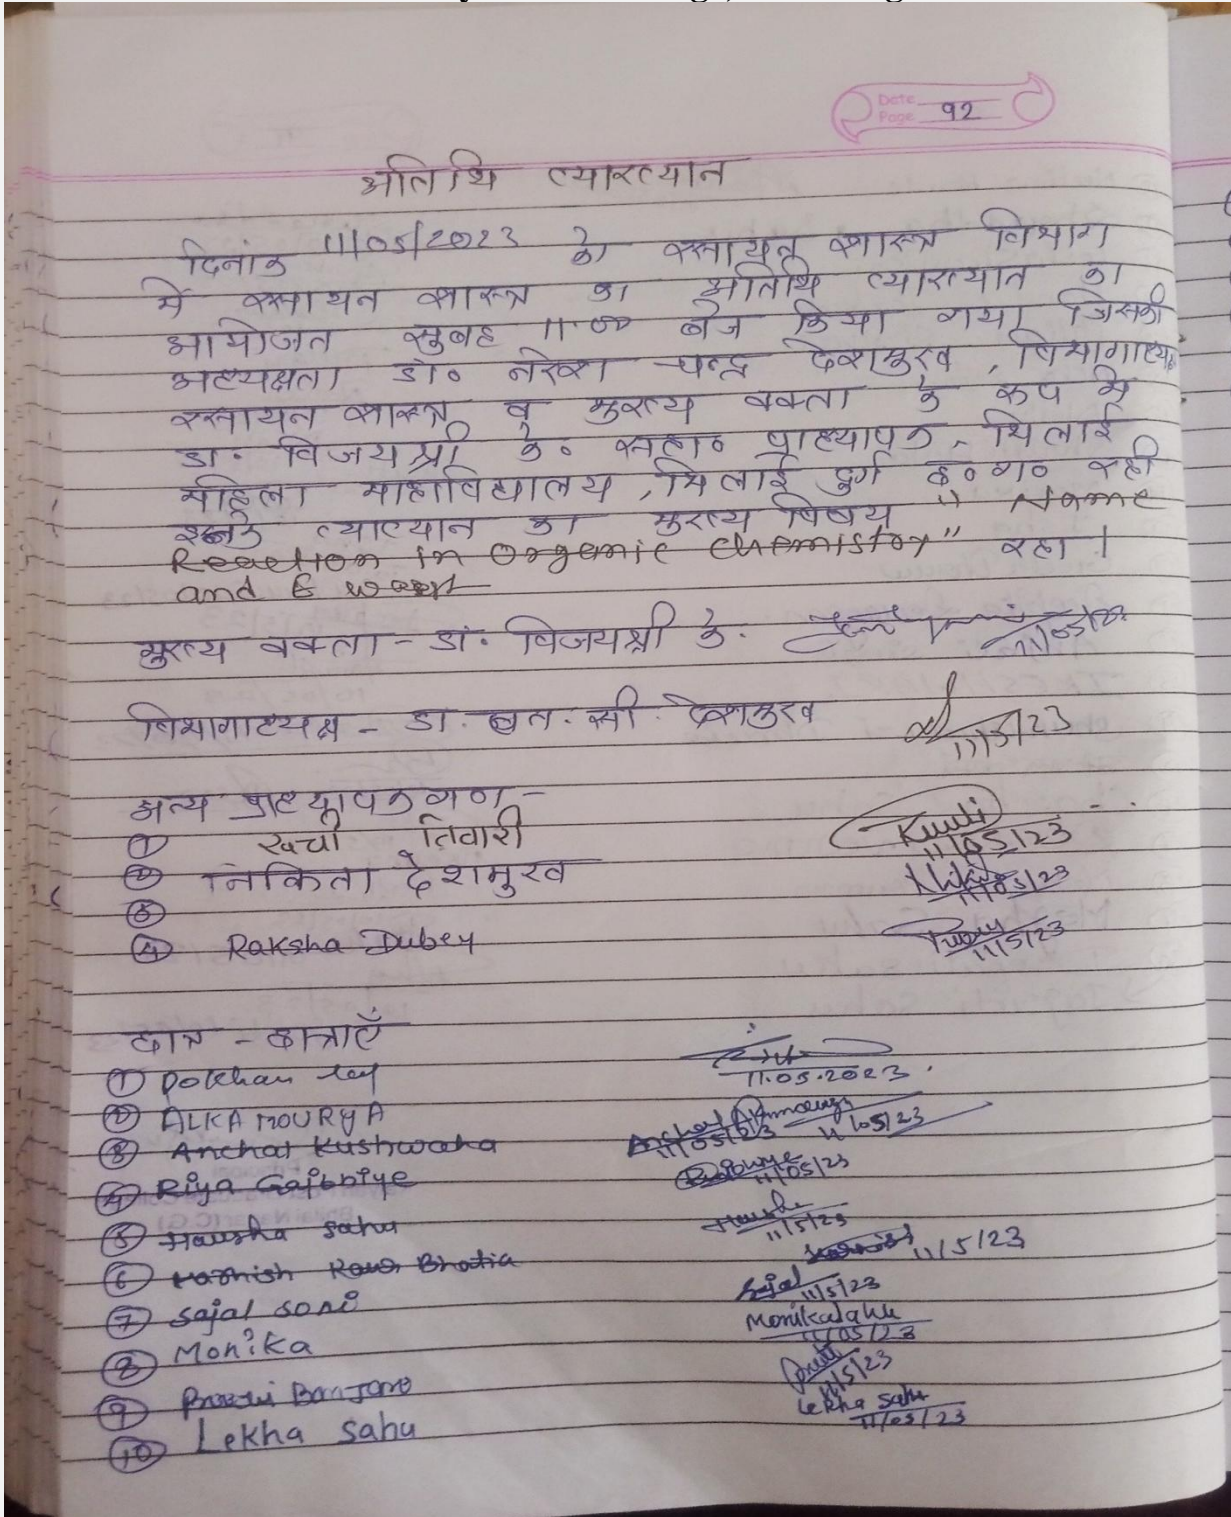 Date
Page 92
अतिथि व्याख्यान
दिनांक 11/05/2023 को रसायन शास्त्र विभाग
में रसायन शास्त्र का अतिथि व्याख्यान का
आयोजन सुबह 11.00 बजे किया गया जिसकी
अध्यक्षता डॉ० नरेश चन्द्र देशमुख, विभागाध्यक्ष
रसायन शास्त्र व मुख्य वक्ता के रूप में
डा. विजयश्री के० सहा० प्राध्यापक, भिलाई
महिला महाविद्यालय, भिलाई दुर्ग छ०ग० रही
इनके व्याख्यान का मुख्य विषय " Name
Reaction in Organic Chemistry" रहा।
and
मुख्य वक्ता - डॉ. विजयश्री के. 11/05/23
विभागाध्यक्ष - डा. एन. सी. देशमुख 11/5/23
अन्य प्राध्यापकगण -
① रूची तिवारी 11/05/23
② निकिता देशमुख 11/05/23
③
④ Raksha Dubey 11/5/23
छात्र - छात्राएँ
① 11.05.2023
② ALKA MOURYA 11/05/23
③ Anchal Kushwaha 11/05/23
④ Riya Gajbhiye 11/05/23
⑤ Harsha Sahu 11/5/23
⑥ Bhatia 11/5/23
⑦ Sajal Soni Sajal 11/5/23
⑧ Monika Monika Sahu 11/05/23
⑨ Preeti Banjare 11/5/23
⑩ Lekha Sahu Lekha Sahu 11/05/23